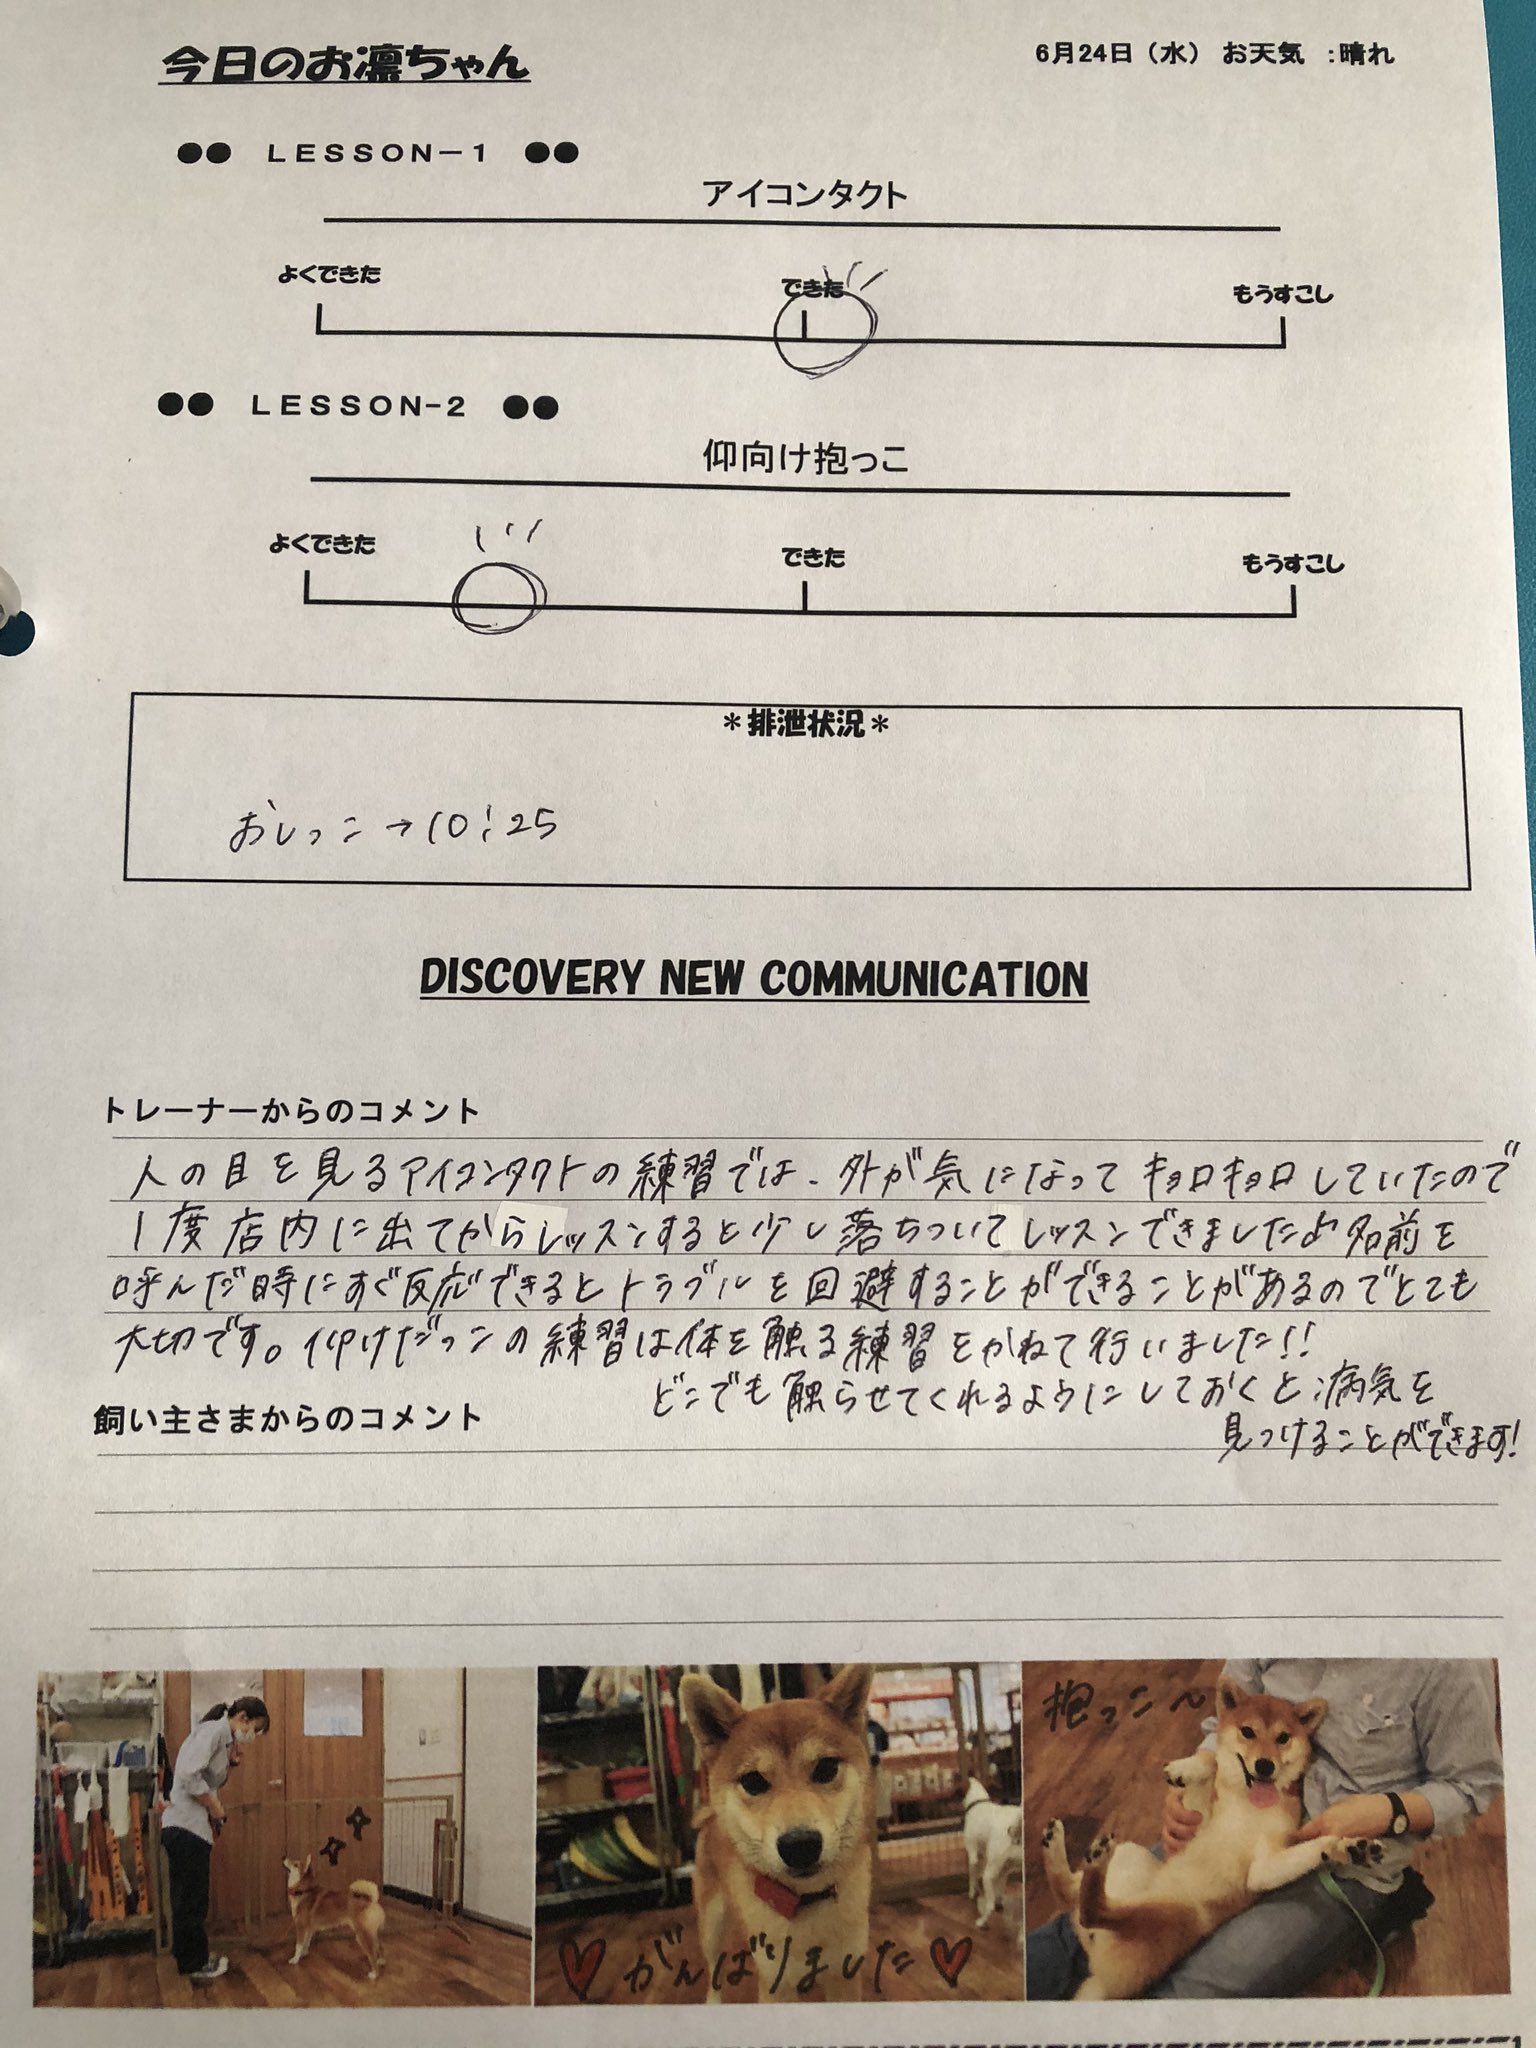 今日のお凛ちゃん
6月24日（水） お天気 :晴れ
●● LESSON-1 ●●
アイコンタクト
よくできた できた もうすこし
●● LESSON-2 ●●
仰向け抱っこ
よくできた できた もうすこし
＊排泄状況＊
おしっこ→10:25
DISCOVERY NEW COMMUNICATION
トレーナーからのコメント
人の目を見るアイコンタクトの練習では、外が気になってキョロキョロしていたので
1度店内に出てからレッスンすると少し落ちついてレッスンできました♪名前を
呼んだ時にすぐ反応できるとトラブルを回避することができることがあるのでとても
大切です。仰けだっこの練習は体を触る練習をかねて行いました!!
どこでも触らせてくれるようにしておくと、病気を
見つけることができます!
飼い主さまからのコメント
がんばりました
抱っこ〜